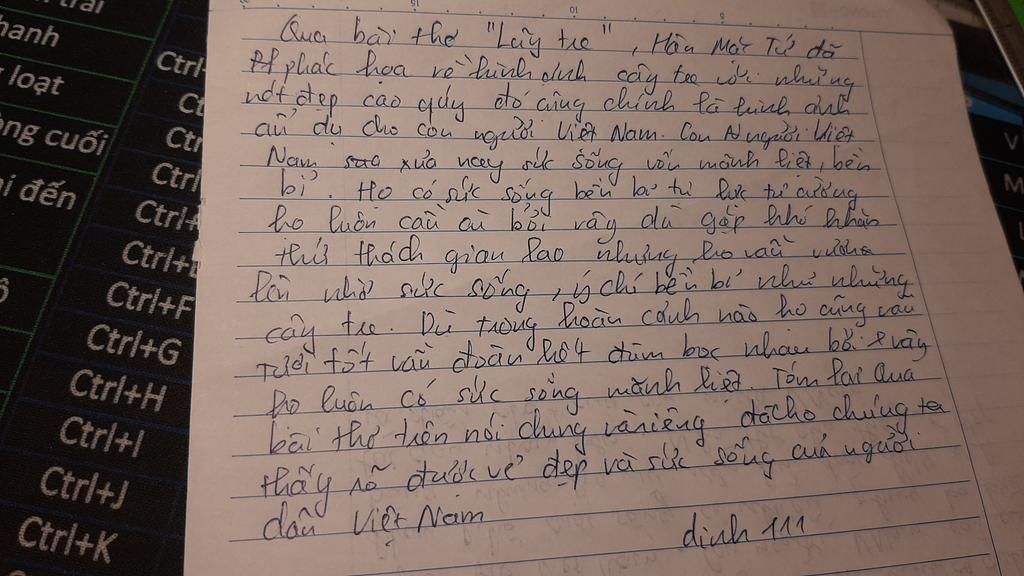 trái
hanh
loạt
ng cuối
i đến
Ctrl+
Ct
Ctr
Ctrl
Ctrl+
Ctrl+
Ctrl+F
Ctrl+G
Ctrl+H
Ctrl+I
Ctrl+J
Ctrl+K
15
10
5
Qua bài thơ "Lũy tre", Hàn Mặc Tử đã
phác họa về hình ảnh cây tre với những
nét đẹp cao quý đó cũng chính là hình ảnh
ẩn dụ cho con người Việt Nam. Con người Việt
Nam xưa nay sức sống vốn mãnh liệt, bền
bỉ. Họ có sức sống bền bỉ tự lực tự cường
họ luôn cần cù bởi vậy dù gặp khó khăn
thử thách gian lao nhưng họ vẫn vươn
lên nhờ sức sống, ý chí bền bỉ như những
cây tre. Dù trong hoàn cảnh nào họ cũng vẫn
tươi tốt vẫn đoàn kết đùm bọc nhau bởi vậy
họ luôn có sức sống mãnh liệt. Tóm lại Qua
bài thơ trên nói chung và riêng đã cho chúng ta
thấy rõ được vẻ đẹp và sức sống của người
dân Việt Nam
dinh 111
V
M